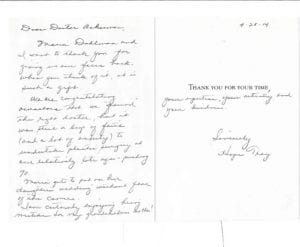 Dear Doctor Ackerman,
Maria Dahlman and
I want to thank you for
giving us our faces back.
When you think of it, it is
such a gift.
We are congratulating
ourselves that we found
the right doctor, but it
was still a leap of faith
(and a lot of anxiety) to
undertake plastic surgery at
our relatively late age - pushing
70.
Maria gets to put on her
daughters wedding without fear
of the camera.
I am certainly enjoying being
mistaken for my grandchildren's mother!
9-28-14
THANK YOU FOR YOUR TIME,
your expertise, your artistry and
your kindness!
Sincerely,